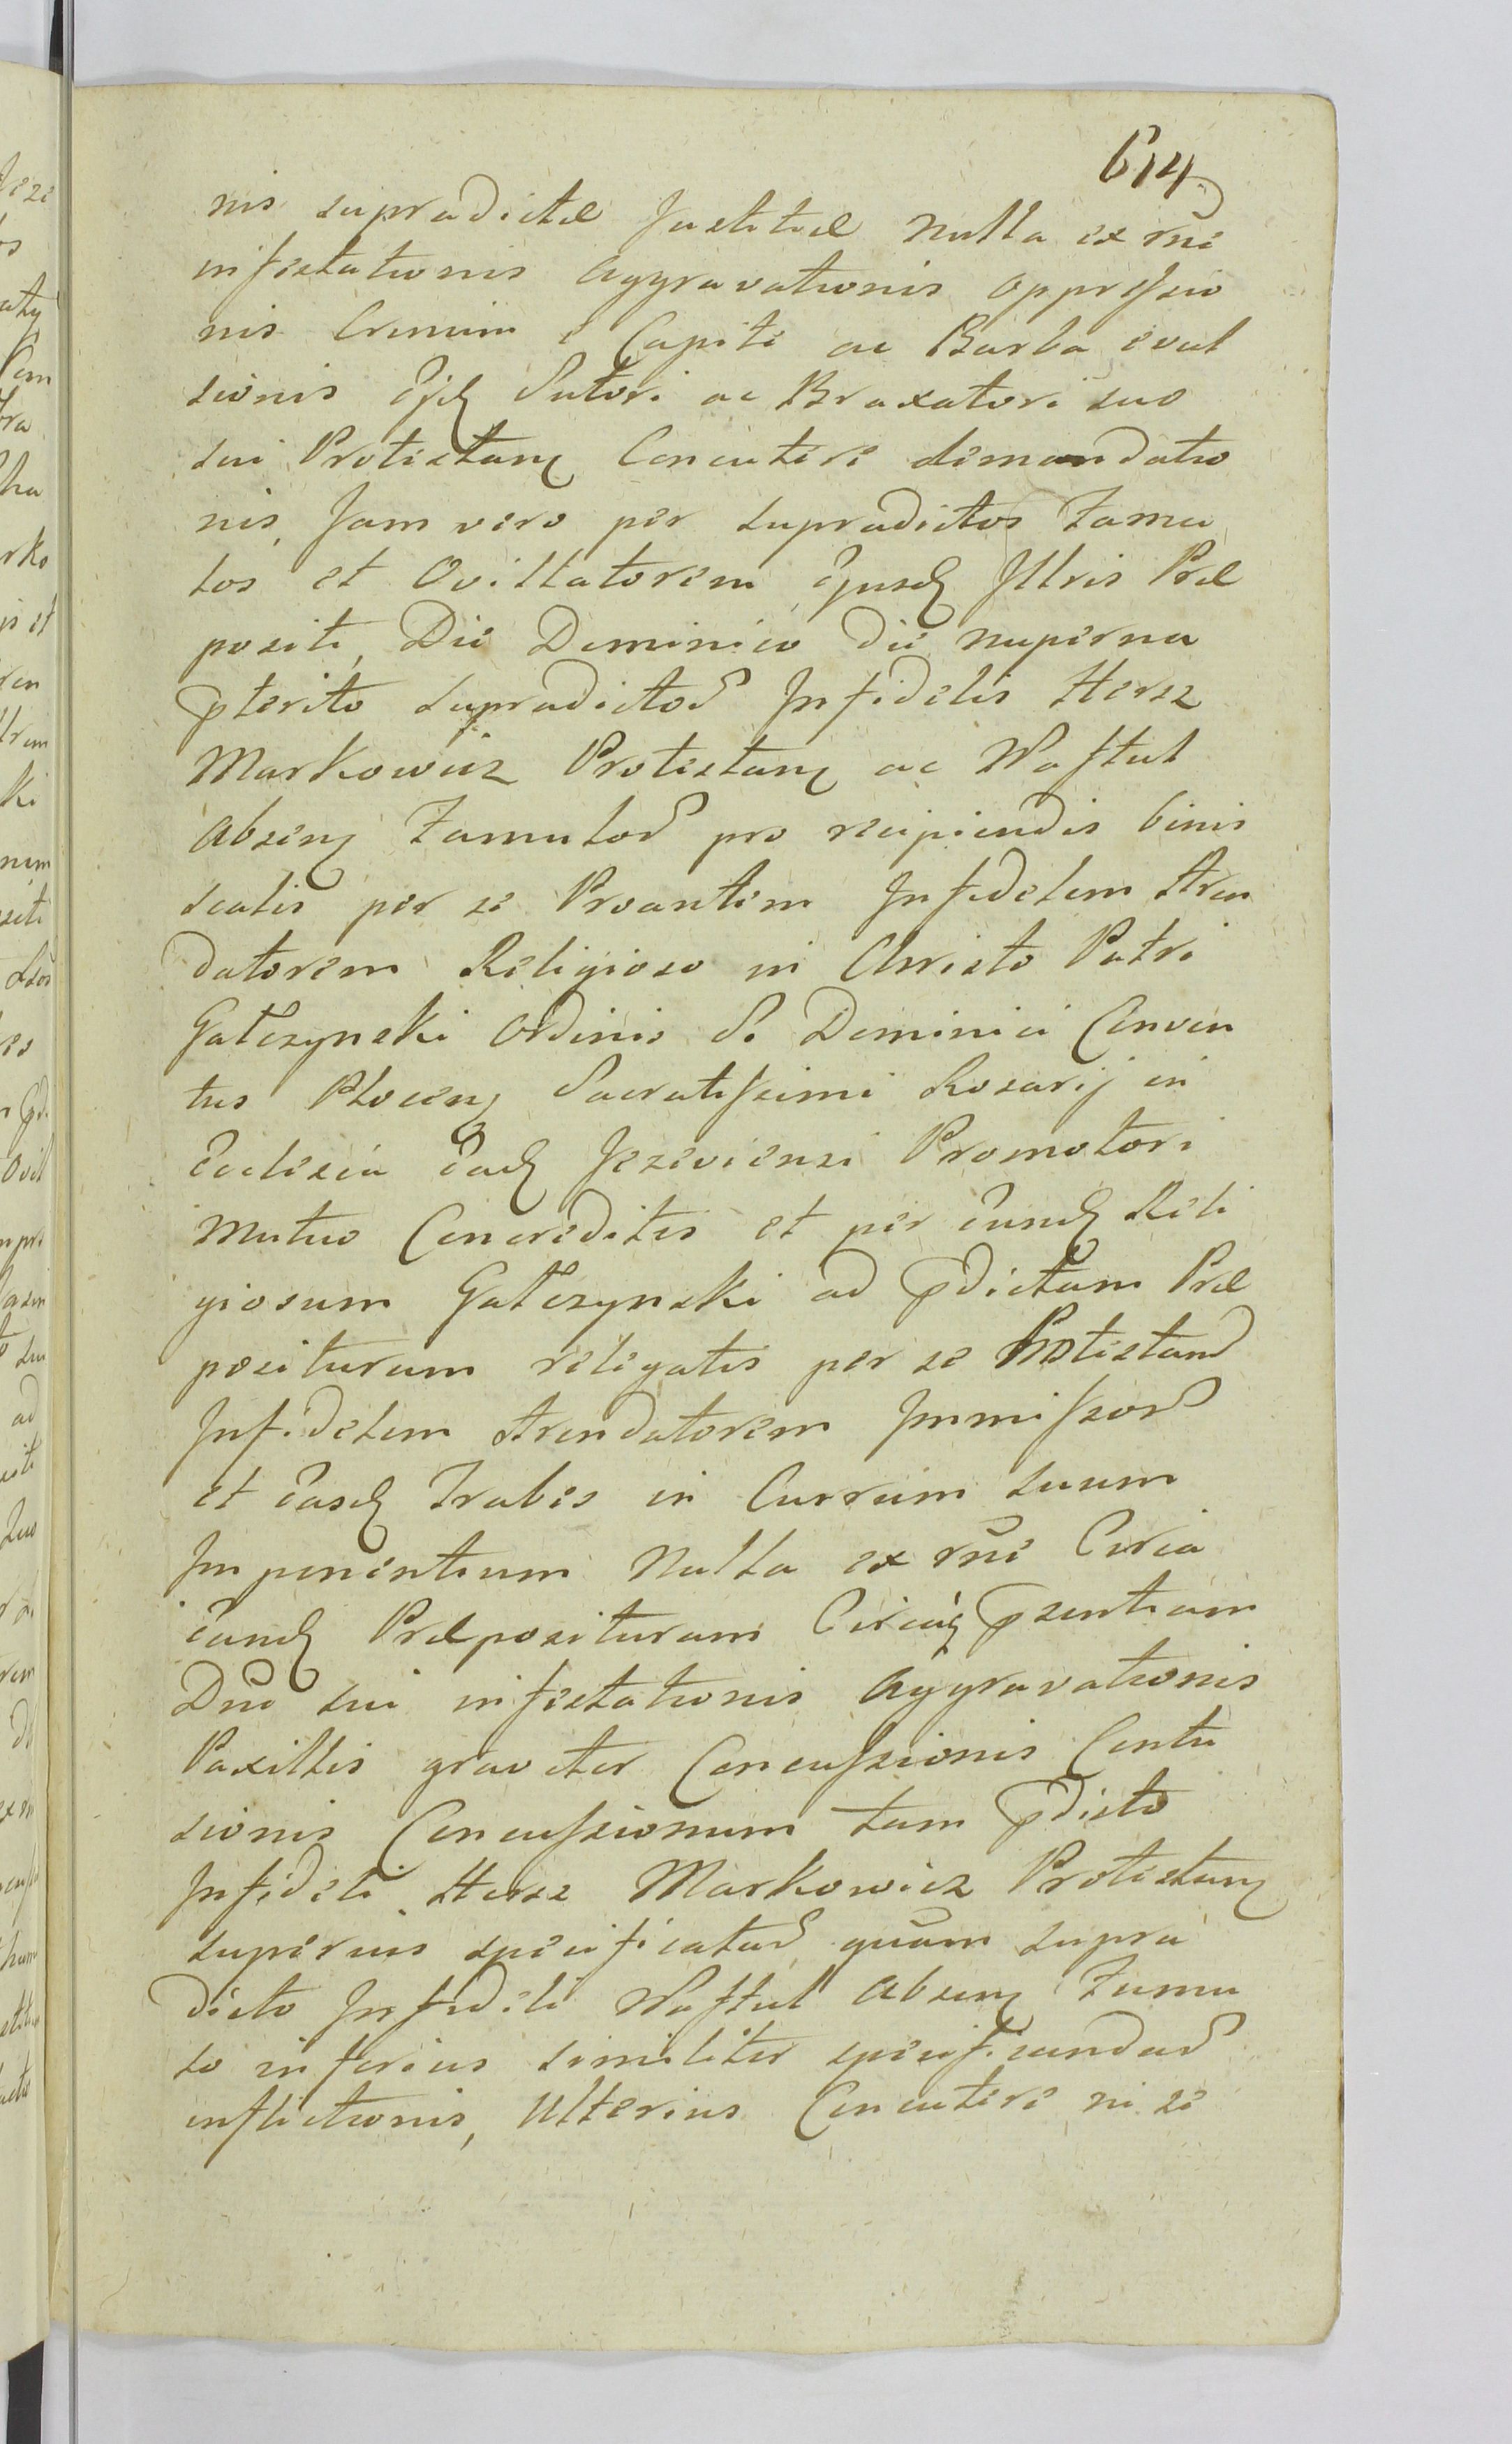 614
nis supradictæ Justitiæ nulla ex rñe
infestationis Aggravationis oppressio
nis Crinium e Capite ac Barba evul
sionis Ejsđ Sutori ac Braxatori suo
sui Protestanẽ Concutere demandatio
nis, Jam vero per supradictos Famu
los et Ovillatorem Ejusđ Illris Præ
positi, Die Dominico die nuperna
pterito supradictoɋ Infidelis Hersz
Markowicz Protestanẽ ac Naftul
Absenẽ Famuloɋ pro recipiendis binis
scalis per se Proantem Infidelem Aren
datorem Religioso in Christo Patri
Gałczynski Ordinis S. Dominici Conven
tus Plocenẽ Sacratissimi Rosarij in
Ecclesia Eađ Jezeviensi Promotori
Mutuo Concreditis et per Eunđ Reli
giosum Gałczynski ad pdictam Præ
posituram relegatis per se Protestanđ
Infidelem Arendatorem Immissoɋ
et Easđ Trabes in Currum suum
Imponentium Nulla ex rñe Circa
Eanđ Præposituram Circaq̃ psentiam
Dni sui infestationis Aggravationis
Paxillis graviter Concussionis Contu
sionis Concussionum tam pdicto
Infideli Hersz Markowicz Protestanẽ
superius specificataɋ quam supra
dicto Infideli Naftul Absenẽ Famu
lo inferius similiter specificandaɋ
inflictionis, Ulterius Concutere ni se